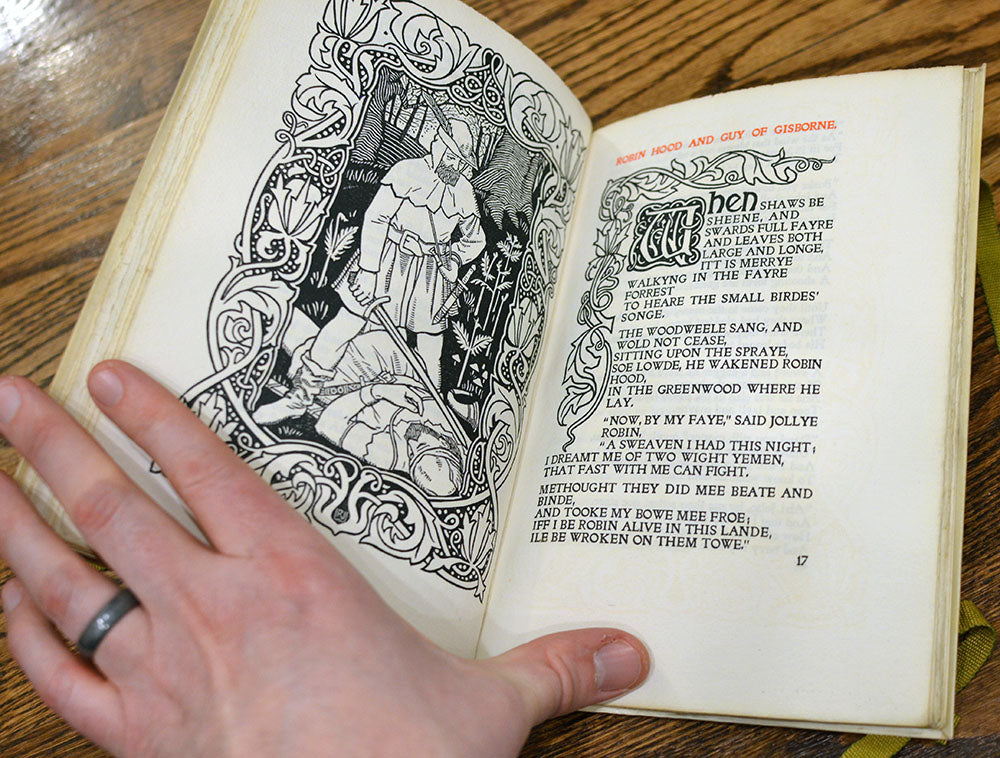 ROBIN HOOD AND GUY OF GISBORNE.
When SHAWS BE
SHEENE, AND
SWARDS FULL FAYRE
AND LEAVES BOTH
LARGE AND LONGE,
ITT IS MERRYE
WALKYNG IN THE FAYRE
FORREST
TO HEARE THE SMALL BIRDES'
SONGE.
THE WOODWEELE SANG, AND
WOLD NOT CEASE,
SITTING UPON THE SPRAYE,
SOE LOWDE, HE WAKENED ROBIN
HOOD,
IN THE GREENWOOD WHERE HE
LAY.
"NOW, BY MY FAYE," SAID JOLLYE
ROBIN,
"A SWEAVEN I HAD THIS NIGHT;
I DREAMT ME OF TWO WIGHT YEMEN,
THAT FAST WITH ME CAN FIGHT.
METHOUGHT THEY DID MEE BEATE AND
BINDE,
AND TOOKE MY BOWE MEE FROE;
IFF I BE ROBIN ALIVE IN THIS LANDE,
ILE BE WROKEN ON THEM TOWE."
17